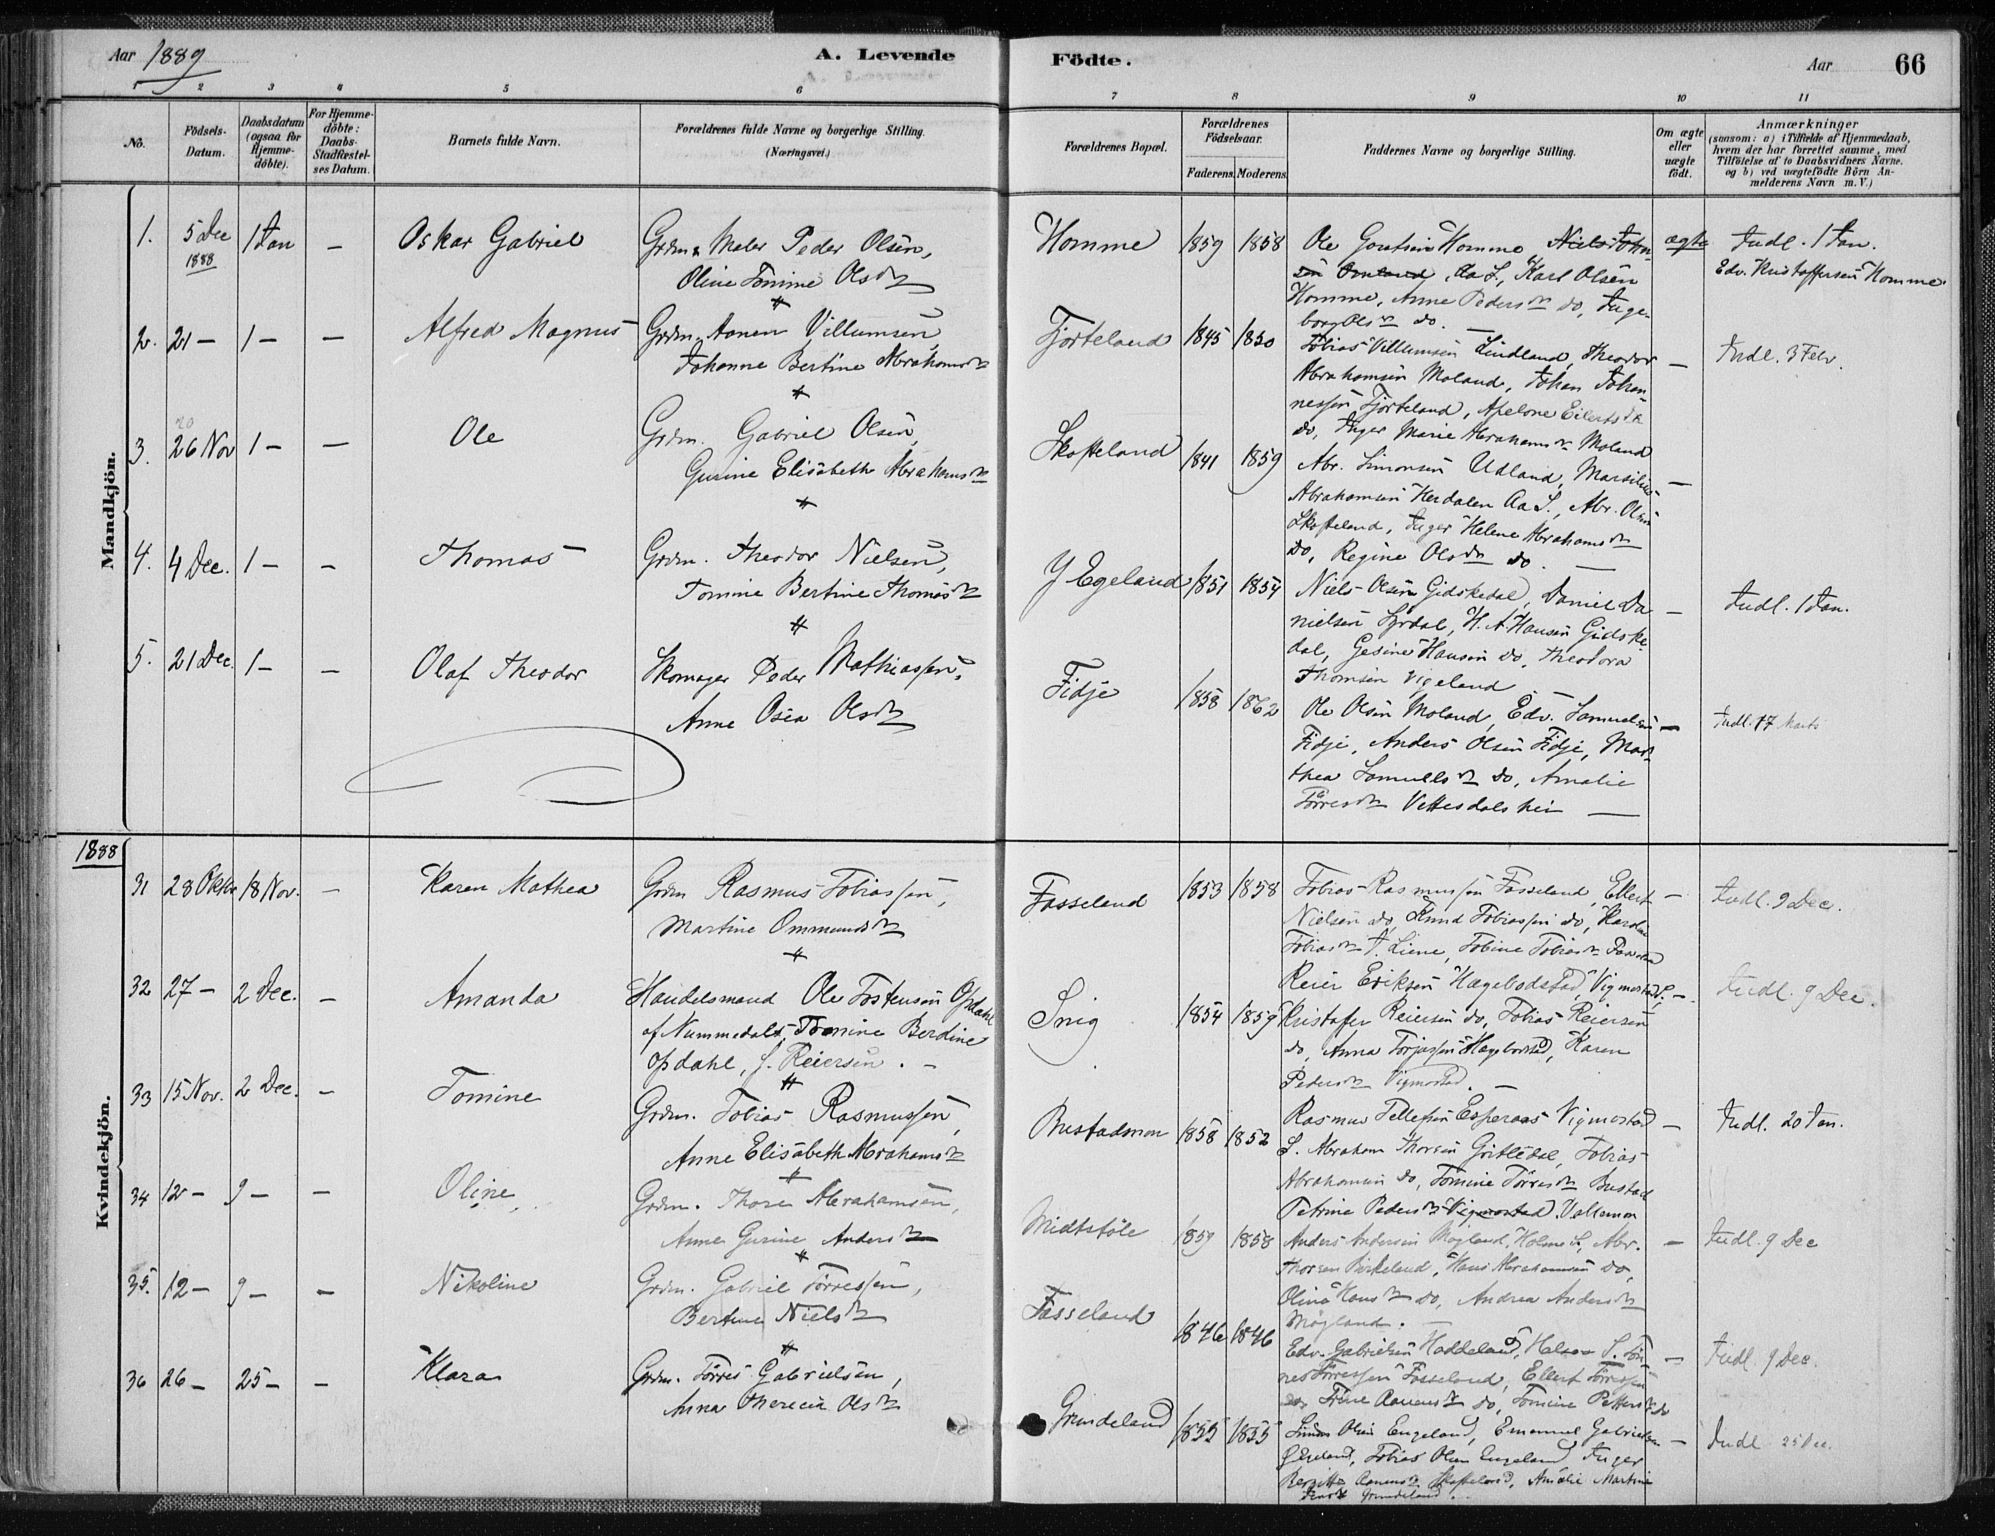 Aar 1889 A. Levende Födte. Aar 66
1 2 3 4 5 6 7 8 9 10 11
No.
Födsels-
Datum.
Daabsdatum
(ogsaa for
Hjemme-
döbte).
For Hjemme-
döbte:
Daabs-
Stadfæstel-
ses Datum.
Barnets fulde Navn.
Forældrenes fulde Navne og borgerlige Stilling.
(Næringsvei.)
Forældrenes Bopæl.
Forældrenes
Födselsaar.
Faderens. Moderens.
Faddernes Navne og borgerlige Stilling.
Om ægte
eller
uægte
födt.
Anmærkninger
(saasom: a) i Tilfælde af Hjemmedaab,
hvem der har forrettet samme, med
Tilföielse af to Daabsvidners Navne.
og b) ved uægtefödte Börn An-
melderens Navn m. V.)
Mandkjön.
1. 5 Dec 1888 1 Jan – Oskar Gabriel
Grdm & Maler Peder Olsen,
Oline Tomine Olsdtr
Homme 1859 1858
Ole Homme
Aa S., Karl Olsen
Homme, Anne Pedersdtr do, Inge-
borg Olsdtr do. –
ægte
Indl. 1 Jan.
Edv. Kristoffersen Homme
2. 21 – 1 – – Alfred Magnus
Grdm. Aanen Villumsen,
Johanne Bertine Abrahamsdtr
Fjorteland 1845 1850
Tobias Villumsen Lindland, Theodor
Abrahamsen Moland, Johan Johan-
nessen Fjorteland, Apelone Eilertsdtr
do, Inger Marie Abrahamsdtr Moland
–
Indl. 3 Febr.
3. 20 26 Nov 1 – – Ole
Grdm. Gabriel Olsen,
Gurine Elisabeth Abrahamsdtr
Skofteland 1841 1859
Abr. Simonsen Udland, Marsilius
Abrahamsen Herdalen Aa S., Abr. Olsen
Skofteland, Inger Helene Abrahamsdtr
do, Regine Olsdtr do. –
–
4. 4 Dec. 1 – – Thomas
Grdm. Theodor Nielsen,
Tomine Bertine Thomasdtr
Y Egeland 1851 1854
Niels Olsen Gidskedal, Daniel Da
nielsen Syrdal, H. A. Hansen Gidske
dal, Gesine Hansen do, Theodora
Thomsen Vigeland –
–
Indl. 1 Jan.
5. 21 Dec. 1 – – Olaf Theodor
Skomager Peder Mathiassen,
Anne Osea Olsdtr
Fidje 1858 1862
Ole Olsen Moland, Edv. Samuelsen
Fidje, Anders Olsen Fidje, Mar-
thea Samuelsdtr do, Amalie
Törresdtr Vettesdalshei –
–
Indl. 17 Marts
1888
Kvindekjön.
31 28 Oktbr 18 Nov. – Karen Mathea
Grdm Rasmus Tobiassen,
Martine Ommundsdtr
Fasseland 1853 1858
Tobias Rasmussen Fasseland, Ellert
Nielsen do, Knud Tobiassen do, Karoline
Tobiasdtr Liene, Tobine Tobiasdtr
–
Indl. 9 Dec.
32 27 – 2 Dec. – Amanda
Handelsmand Ole Tostensen Opdahl
af Nummedal, Tomine Berdine
Opdahl, f. Reiersen. –
Snig 1854 1859
Reier Eriksen Hægebodstad, Vigmostad S.
Kristofer Reiersen do, Tobias Reiersen
do, Anna Torjussen Hægebostad, Karen
Pedersdtr Vigmostad. –
–
Indl. 9 Dec.
33 15 Nov. 2 Dec. – Tomine
Grdm. Tobias Rasmussen,
Anne Elisabeth Abrahamsdtr
Bustadmon 1858 1852
Rasmus Tellefsen Esperaas Vigmostad
S. Abraham Thorsen Gritledal, Tobias
Abrahamsen do, Tomine Törresdtr Bustad
Petrine Pedersdtr Vigmostad.
–
Indl. 20 Jan.
34 12 – 9 – – Oline
Grdm. Thore Abrahamsen,
Anne Gurine Andersdtr
Midtstöle 1859 1858
Anders Andersen Mögland, Holme S., Abr.
Thorsen Birkeland, Hans Abrahamsen do,
Olina Hansdtr do, Andrea Andersdtr
Mögland. –
–
Indl. 9 Dec
35. 12 – 9 – – Nikoline
Grdm. Gabriel Törressen,
Bertine Nielsdtr
Fasseland 1846 1846
Edv. Gabrielsen Haddeland, S. Tön-
nes Törressen Fasseland, Ellert Törressen
do, Trine Aanensdtr do, Tomine Pettersdtr do
–
Indl 9 Dec.
36 26 – 25 – – Klara
Grdm. Törres Gabrielsen,
Anna Therecia Olsdtr
Grundeland 1855 1855
Simon Olsen Engeland, Emanuel Gabrielsen
Egeland, Tobias Olsen Engeland Inger
Bergitte Aanensdtr Skofteland, Amalie Martine
Grundeland.
–
Indl 25 Dec.